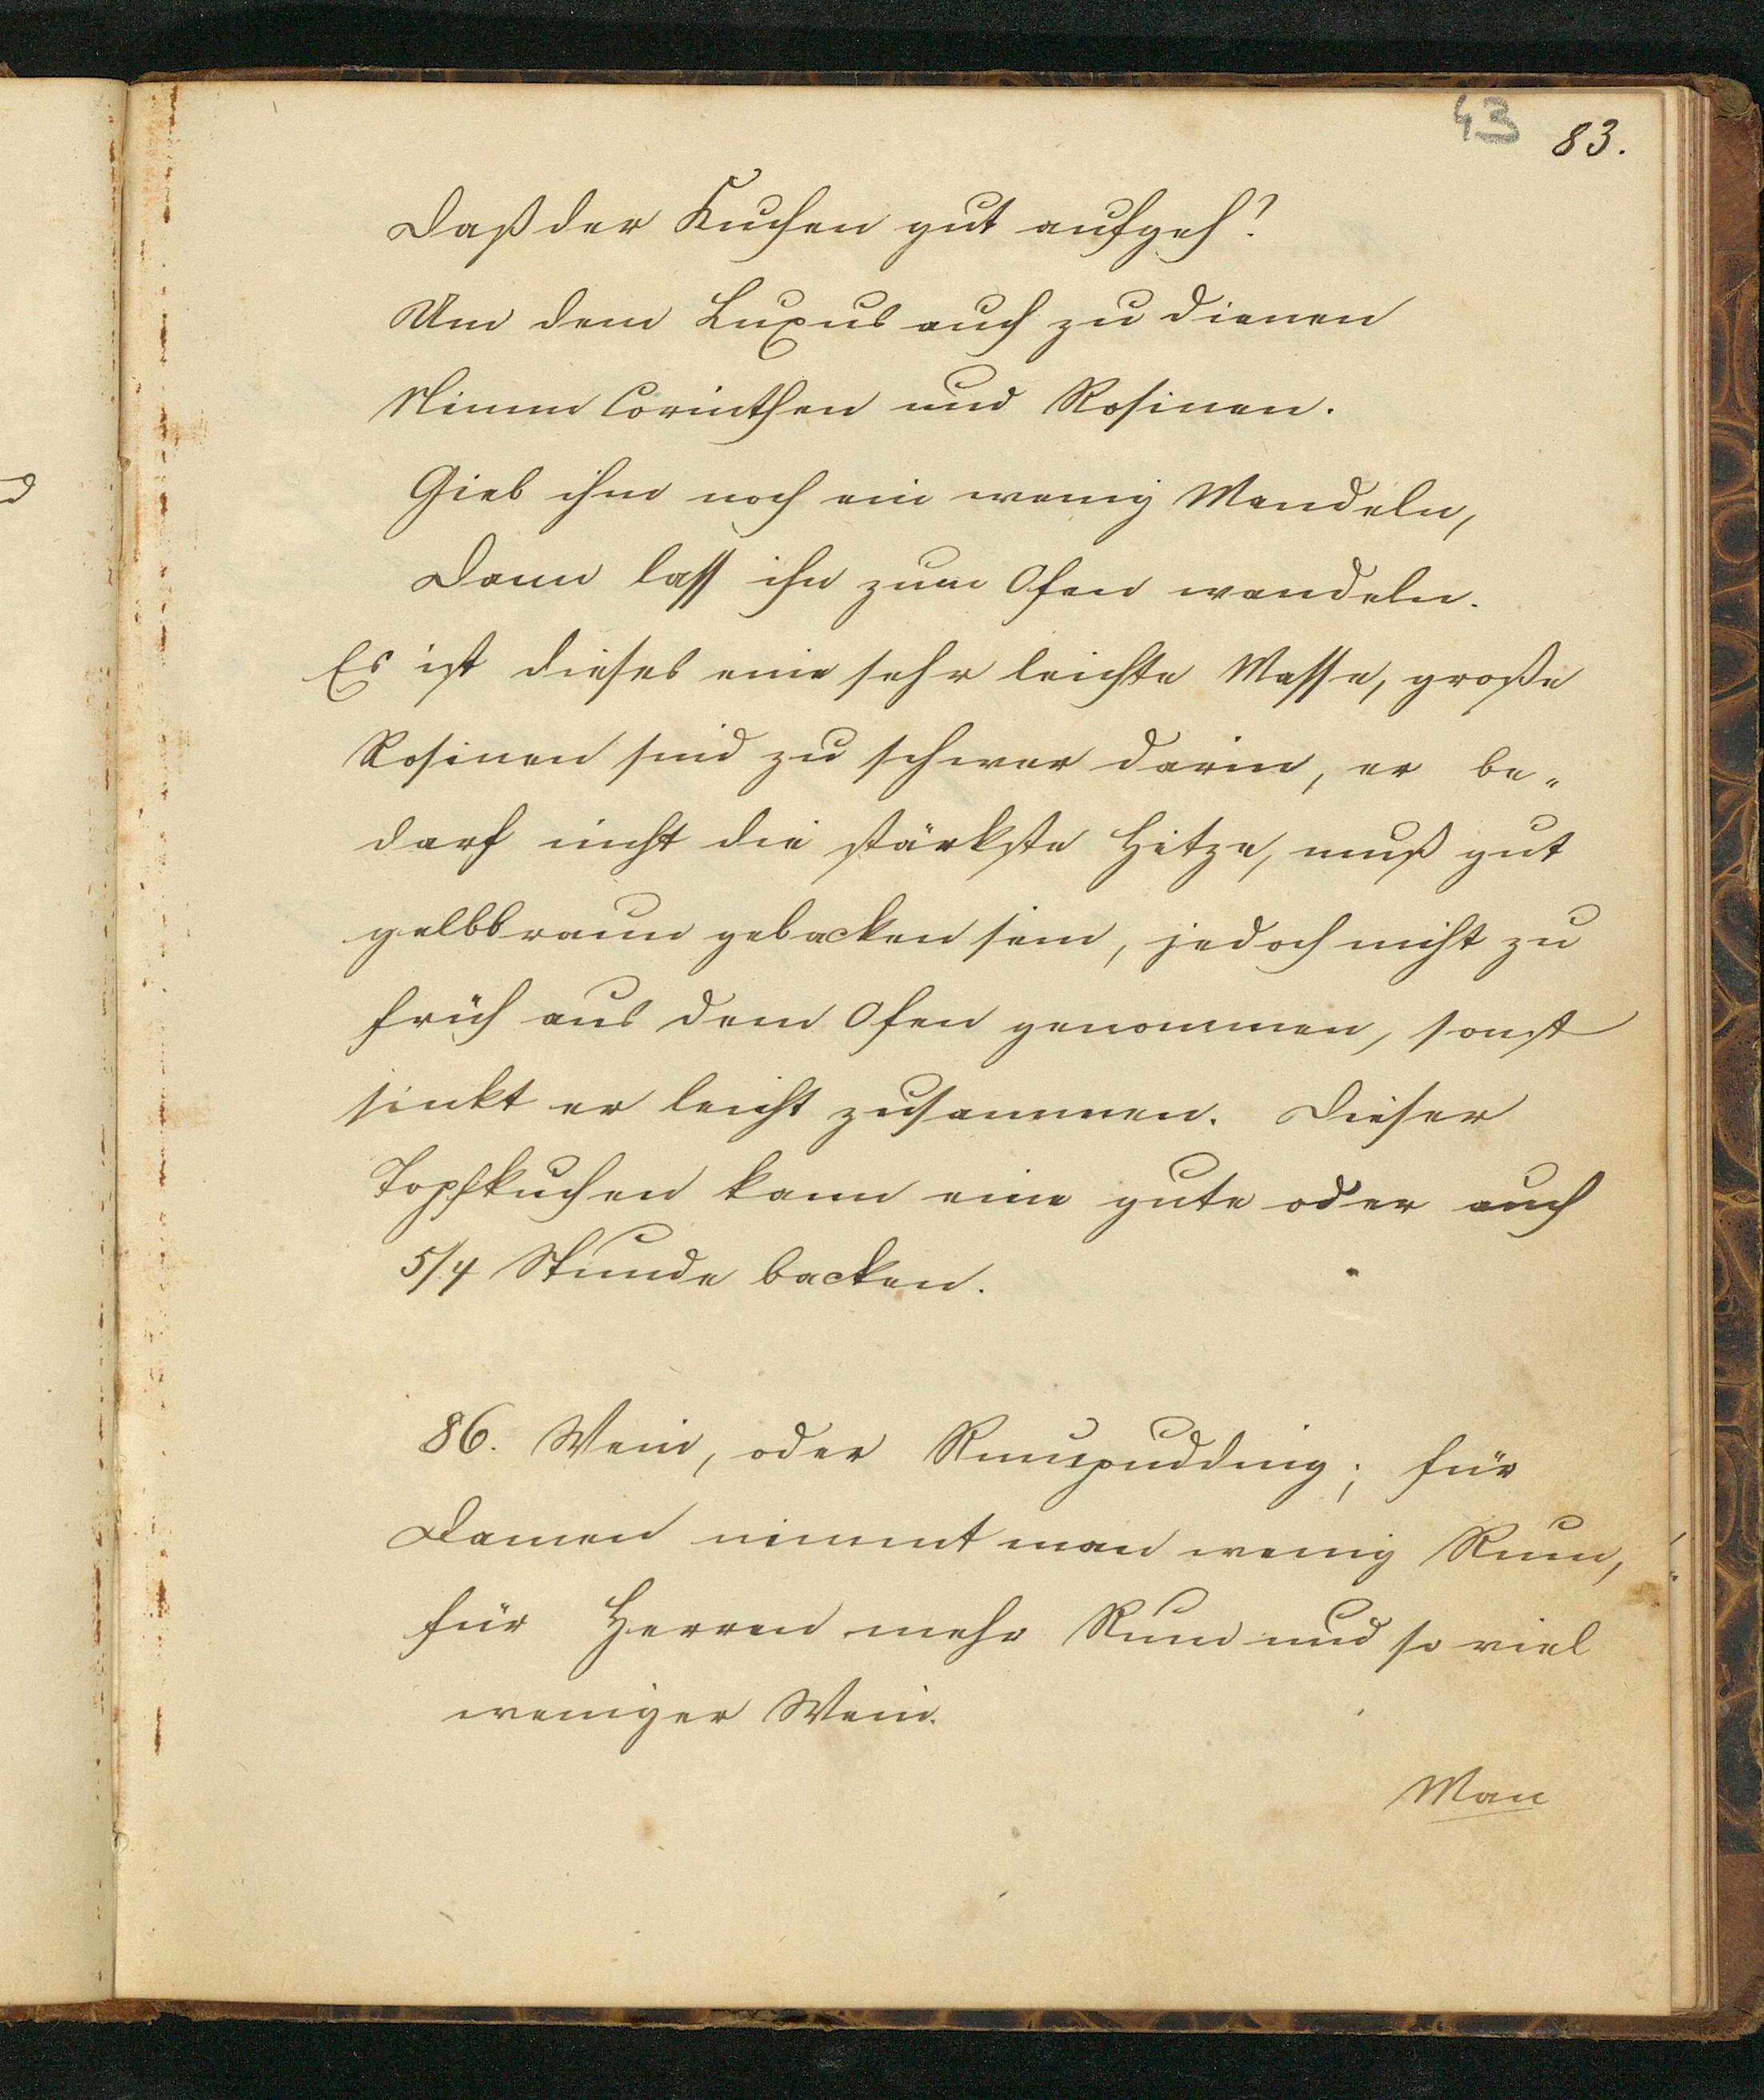 43 83.
Daß der Kuchen gut aufgeh?
Um dem Luxus auch zu dienen
Nimm Corinthen und Rosinen.
Gieb ihm noch ein wenig Mandeln,
Dann lass ihn zum Ofen wandeln.
Es ist dieses eine sehr leichte Masse, große
Rosinen sind zu schwer darin, er be„
darf nicht die stärkste Hitze, muß gut
gelbbraun gebacken sein, jedoch nicht zu
früh aus dem Ofen genommen, sonst
sinkt er leicht zusammen. Dieser
Topfkuchen kann eine gute oder auch
5/4 Stunde backen.
86. Wein, oder Rumpudding; für
Damen nimmt man wenig Rum,
für Herren mehr Rum und so viel
weniger Wein.
Man